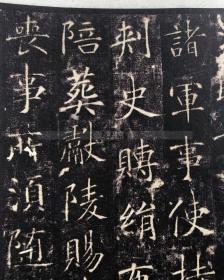 諸軍事使持
刺史賻絹布
陪葬獻陵賜
喪事所須随